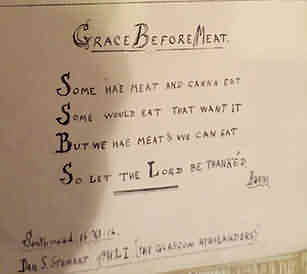 Grace Before Meat.
Some hae meat and canna eat
Some would eat that want it
But we hae meat & we can eat
So let the Lord be thanked
Burns
Dan S. Stewart H.L.I (The Glasgow Highlanders)